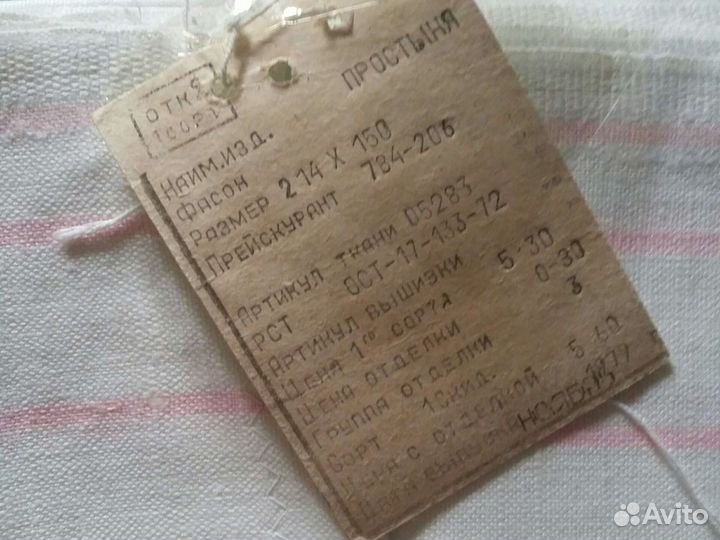 ОТК 2
1 СОРТ
НАИМ.ИЗД. ПРОСТЫНЯ
ФАСОН
РАЗМЕР 214 Х 150
ПРЕЙСКУРАНТ 784-206
АРТИКУЛ ТКАНИ 05283
РСТ ОСТ-17-133-72
АРТИКУЛ ВЫШИВКИ
ЦЕНА 1го СОРТА 5-30
ЦЕНА ОТДЕЛКИ 0-30
ГРУППА ОТДЕЛКИ 3
СОРТ 1СКИД.
ЦЕНА С ОТДЕЛКОЙ 5 60
ДАТА ВЫПУСКА НОЯБ 1977 г
Avito